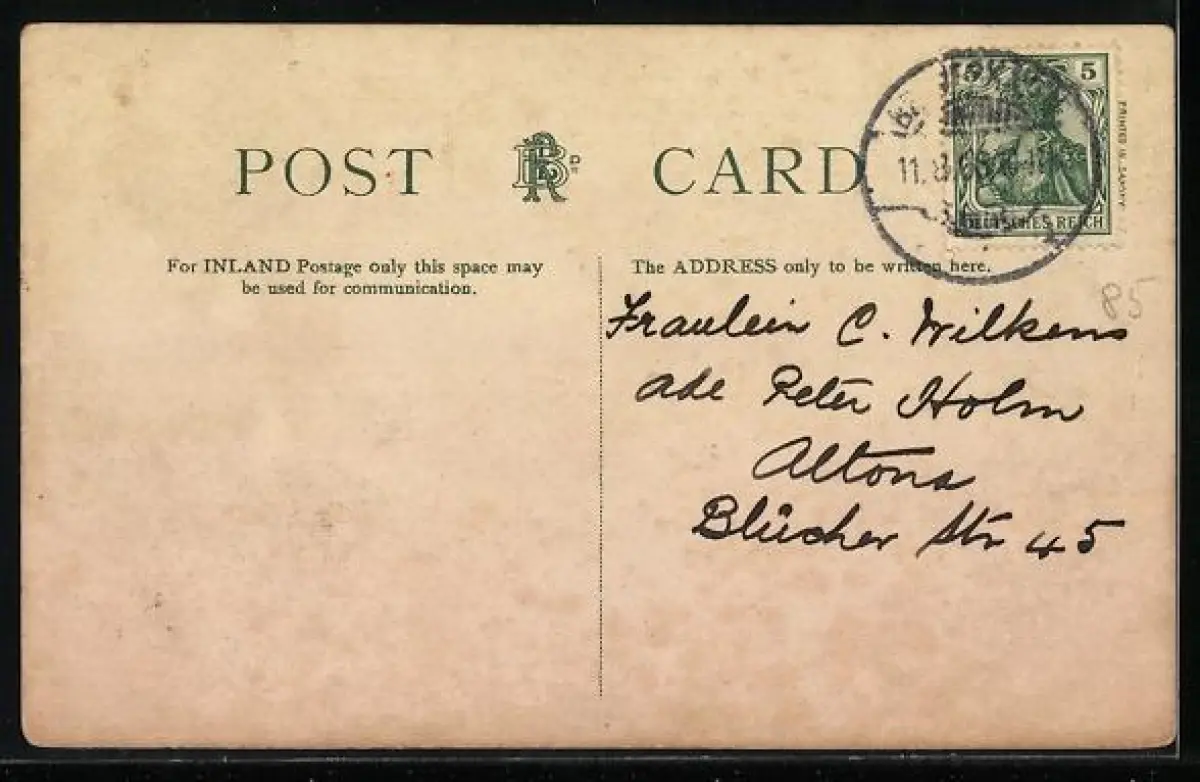 POST CARD
For INLAND Postage only this space may
be used for communication.
The ADDRESS only to be written here.
5
DEUTSCHES REICH
PRINTED IN SAXONY
11. 8.
85
Fraulein C. Wilkens
ade Peter Holm
Altona
Blücher Str 45